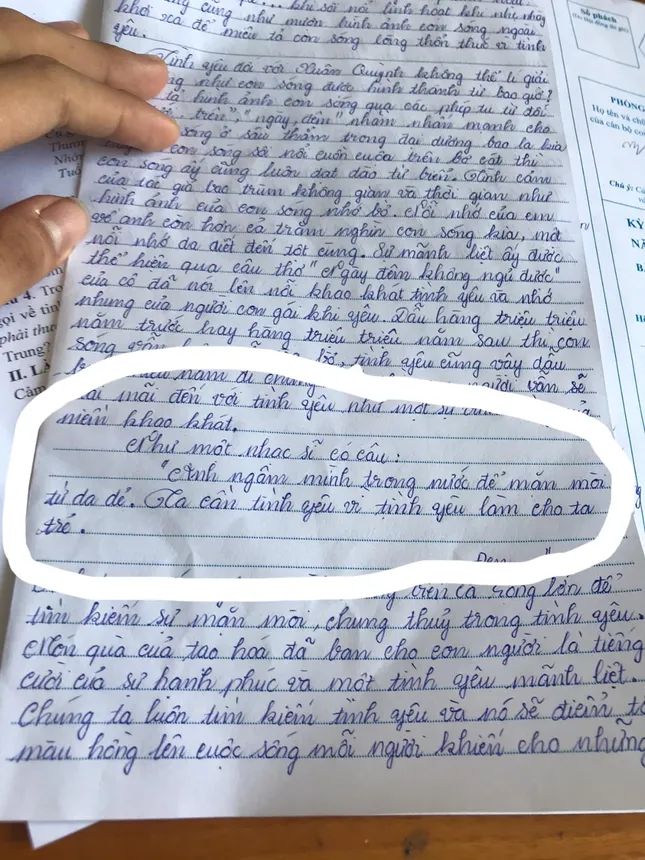 cũng như mượn hình ảnh con sóng ngoài
khơi xa để miêu tả con sóng lòng thổn thức vì tình
yêu.
Tình yêu đối với Xuân Quỳnh không thể lí giải
như con sóng được hình thành từ bao giờ?
hình ảnh con sóng qua các phép tu từ đối
trên", "ngày, đêm" nhằm nhấn mạnh cho
sóng ở sâu thẳm trong đại dương bao la kia
con sóng sôi nổi cuồn cuộn trên bờ cát thì
con sóng ấy cũng luôn dạt dào từ biển. Tình cảm
của tác giả bao trùm không gian và thời gian như
hình ảnh của con sóng nhớ bờ. Nỗi nhớ của em
về anh còn hơn cả trăm nghìn con sóng kia, một
nỗi nhớ da diết đến tột cùng. Sự mãnh liệt ấy được
thể hiện qua câu thơ "Ngày đêm không ngủ được"
của cô đã nói lên nỗi khao khát tình yêu và nhớ
nhung của người con gái khi yêu. Dẫu hàng triệu triệu
năm trước hay hàng triệu triệu năm sau thì con
sóng vẫn bờ, tình yêu cũng vậy dẫu
năm đi chăng người vẫn sẽ
mãi đến với tình yêu như một sự
niềm khao khát.
Như một nhạc sĩ có câu:
"Anh ngâm mình trong nước để mặn mòi
từ da dẻ. Ta cần tình yêu vì tình yêu làm cho ta
trẻ.
Đen"
trên cả rộng lớn để
tìm kiếm sự mặn mòi, chung thuỷ trong tình yêu.
Món quà của tạo hoá đã ban cho con người là tiếng
cười của sự hạnh phúc và một tình yêu mãnh liệt.
Chúng ta luôn tìm kiếm tình yêu và nó sẽ điểm tô
màu hồng lên cuộc sống mỗi người khiến cho những
Số phách
PHÒNG
Họ tên và chữ
của cán bộ coi
Chú ý:
KỲ
4. Trọ
gọi về tìn
phải thư
Trung?
II. LÀ
Cảm